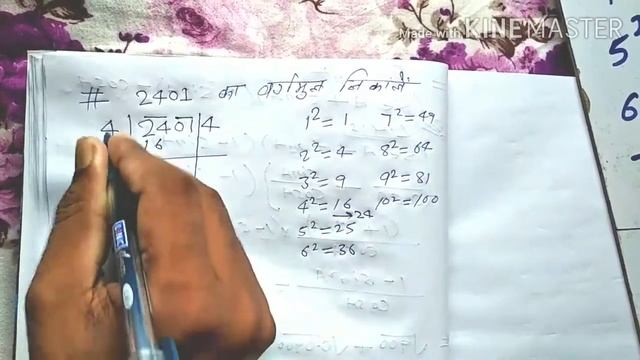 Made with KINEMASTER
# 2401 का वर्गमुल निकाले.
4 | 2401 | 4
16
1²=1 7²=49
2²=4 8²=64
3²=9 9²=81
4²=16 10²=100
→24
5²=25
6²=36
5
6